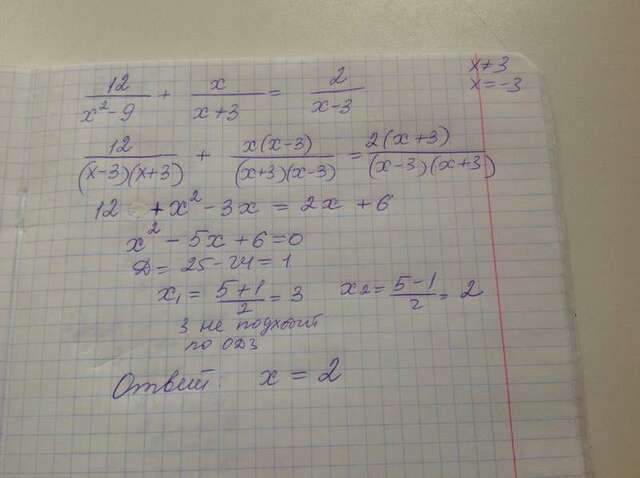 12/(x²-9) + x/(x+3) = 2/(x-3)
x≠3
x=-3
12/((x-3)(x+3)) + x(x-3)/((x+3)(x-3)) = 2(x+3)/((x-3)(x+3))
12 + x² - 3x = 2x + 6
x² - 5x + 6 = 0
D = 25 - 24 = 1
x₁ = (5+1)/2 = 3 x₂ = (5-1)/2 = 2
3 не подходит
по ОДЗ
Ответ x = 2